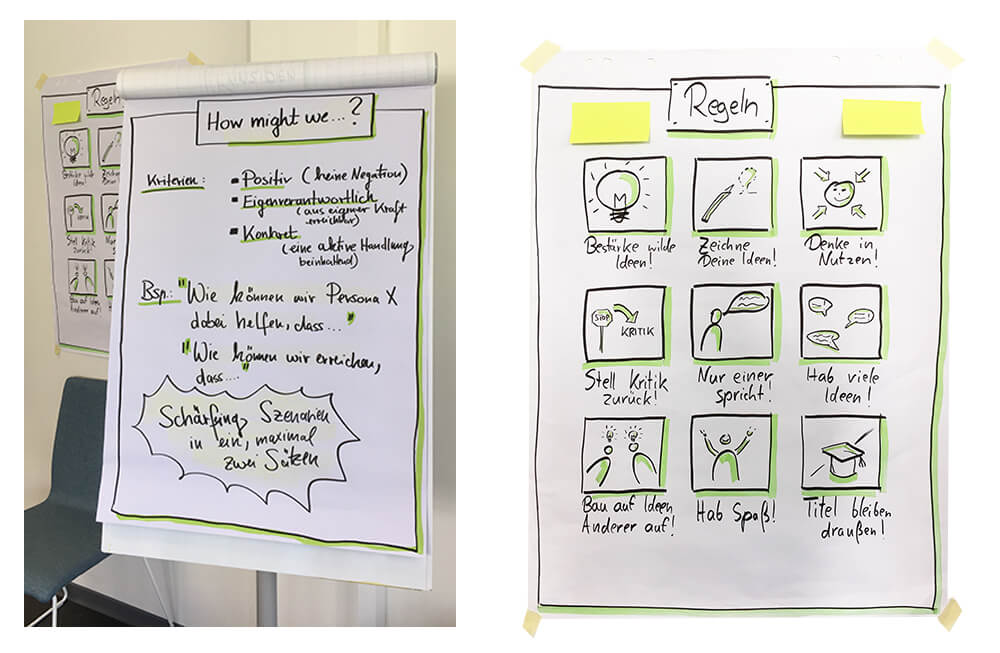 How might we...?
Kriterien:
- Positiv (keine Negation)
- Eigenverantwortlich
(aus eigener Kraft
erreichbar)
- Konkret
(eine aktive Handlung
beinhaltend)
Bsp.: "Wie können wir Persona X
dabei helfen, dass..."
"Wie können wir erreichen,
dass...."
Schärfung, Szenarien
in ein, maximal
zwei Sätzen
Regeln
Bestärke wilde
Ideen!
Zeichne
Deine
Stell Kritik
zurück!
Nur
Bau auf Ideen
Anderer auf!
Regeln
Bestärke wilde
Ideen!
Zeichne
Deine Ideen!
Denke in
Nutzen!
STOP
KRITIK
Stell Kritik
zurück!
Nur einer
spricht!
Hab viele
Ideen!
Bau auf Ideen
Anderer auf!
Hab Spaß!
Titel bleiben
draußen!